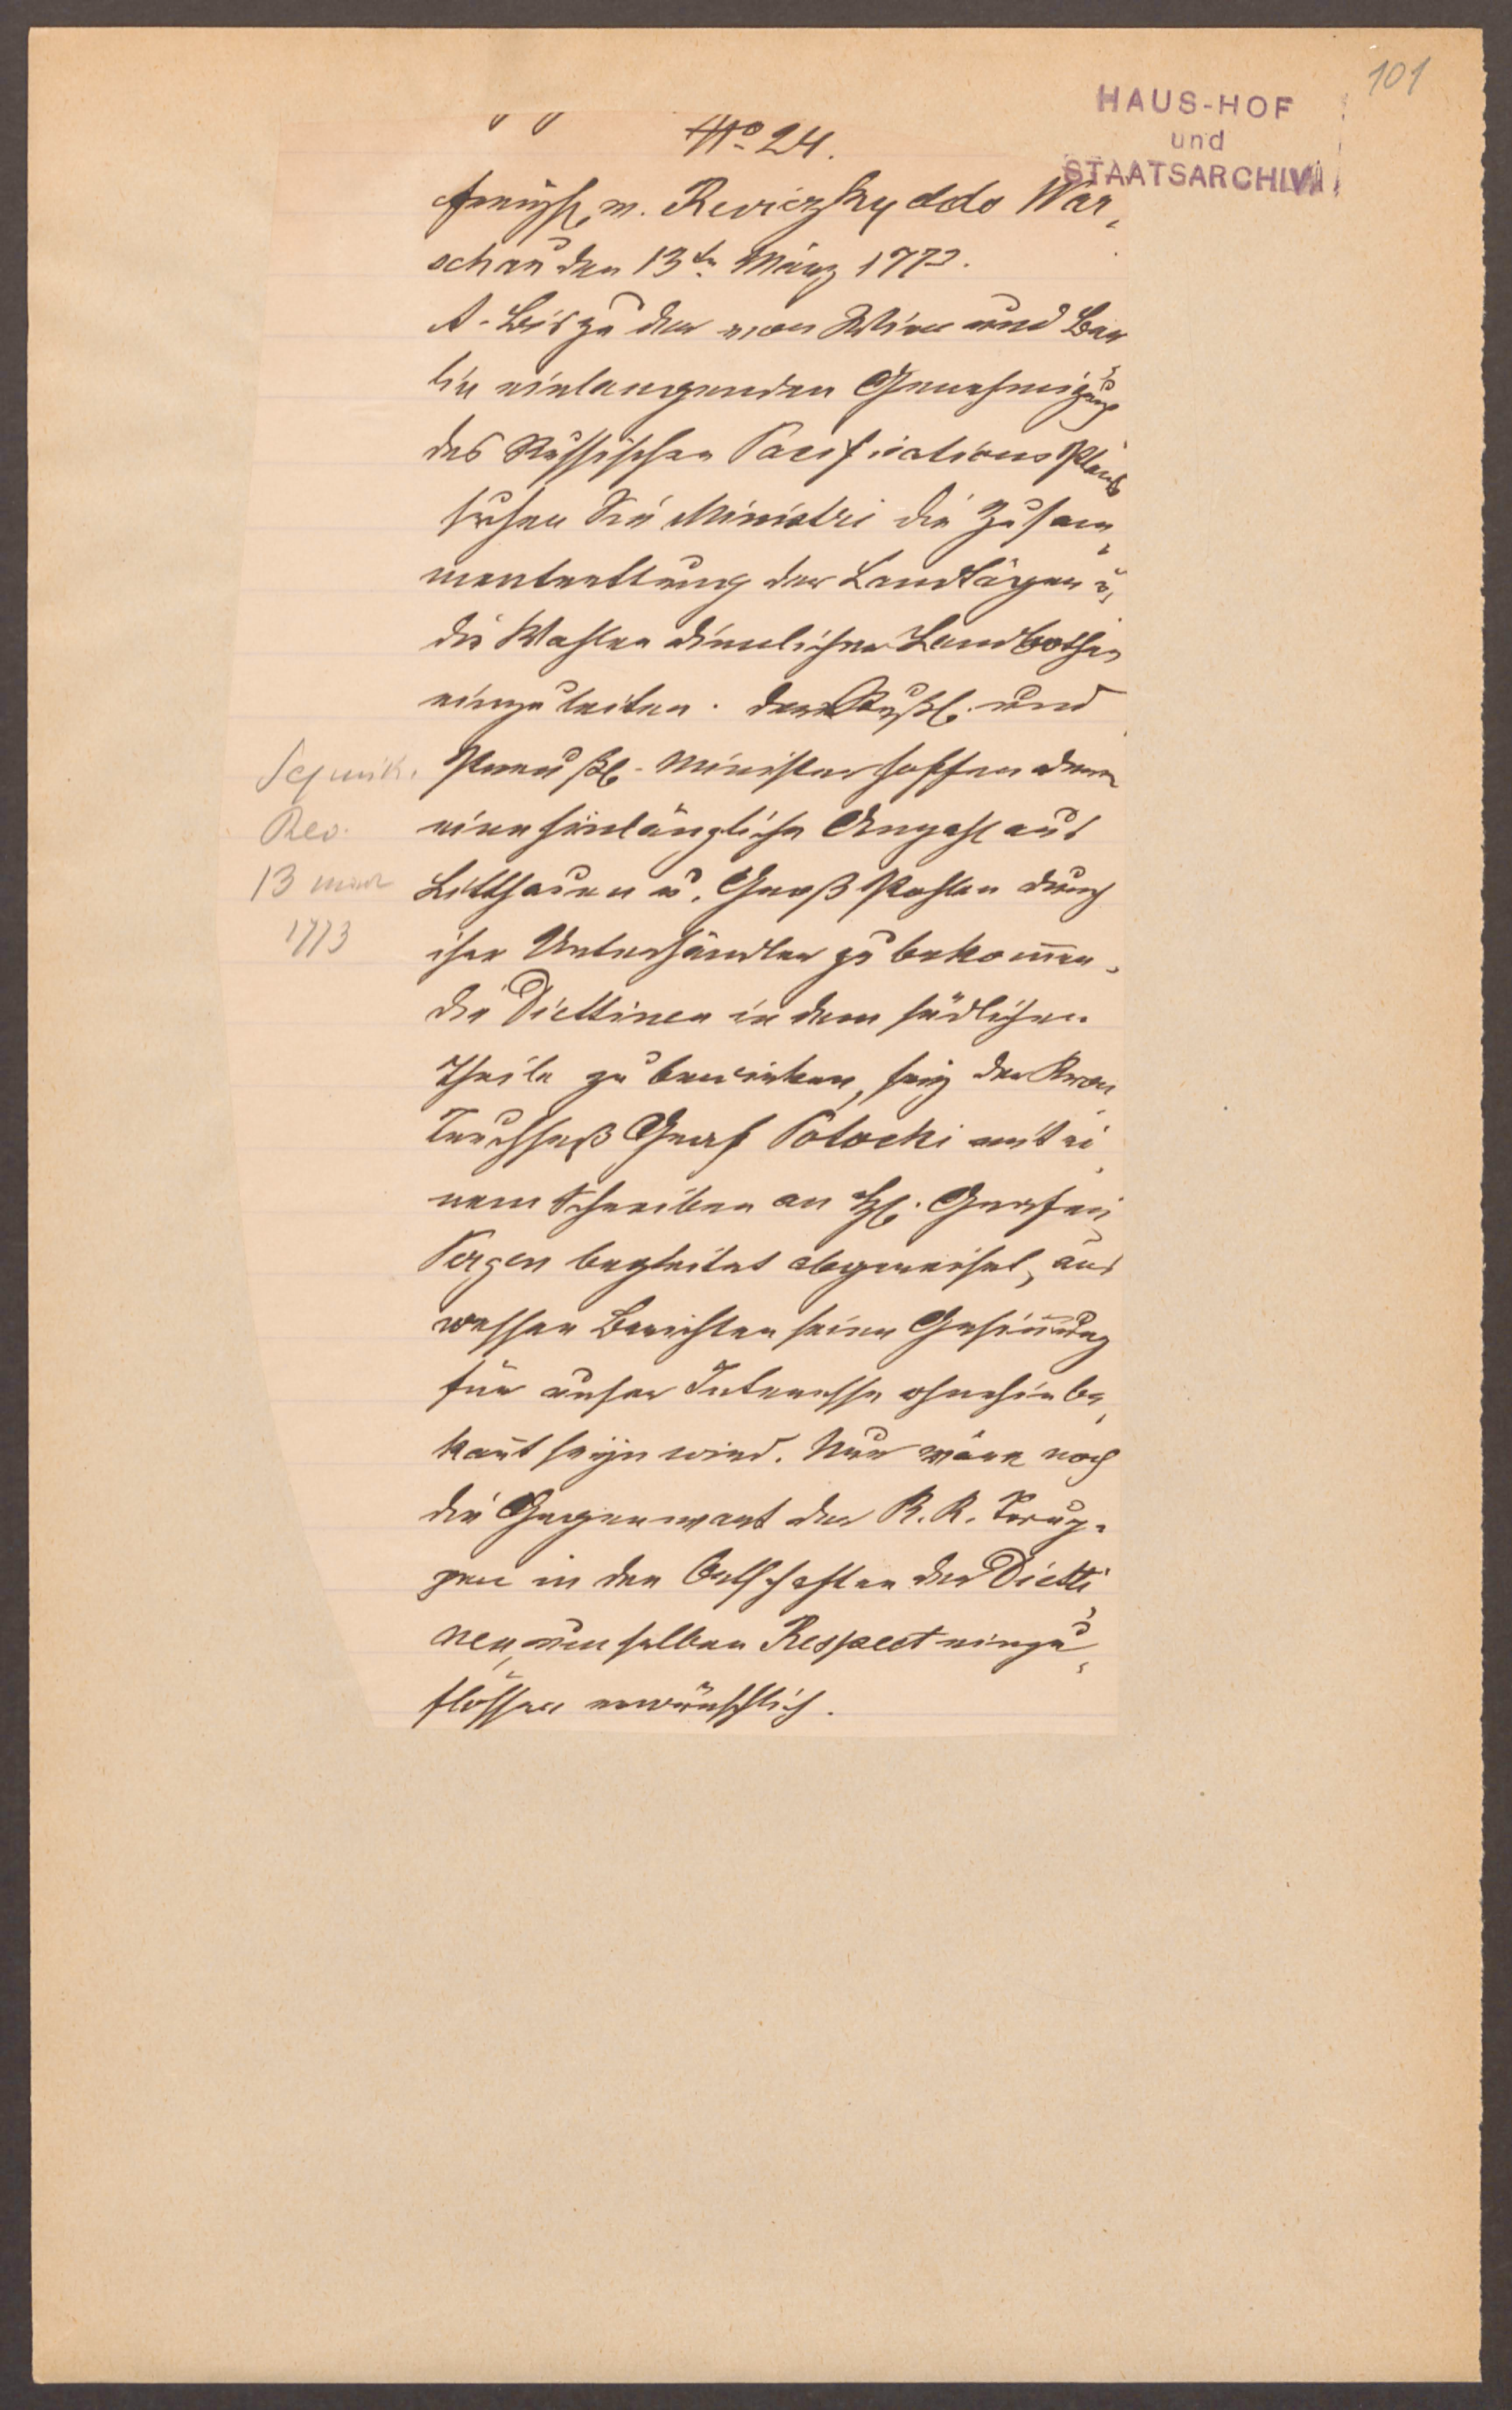 101
HAUS-HOF
und
STAATSARCHIV
No 24.
v. Reviczky ddo War-
schau den 13tn März 1773.
A. Bis zu der von Wien und Ber
lin einlangenden Genehmigung
des Russischen Pacifications Plans
suchen die Ministri die Zusam-
mentrettung der Landtägen u.
die Wahlen dienlicher Landbothen
einzuleiten. Der Russl. und
Preußl. Minister hoffen deren
eine hinlängliche Anzahl aus
Litthauen u. Groß Pohlen durch
ihre Unterhändler zu bekom̄en,
die Diettinen in dem südlichen
Theile zu bewirken, seÿ der Kron
Truchseß Graf Potocki mit ei-
nem Schreiben an H. Grafen
Pergen begleitet abgereiset, aus
wessen Berichten seine Gesin̄ung
für unser Interesse ohnehin be-
kan̄t seÿn wird. Nur wäre noch
die Gegenwart der K. K. Trup-
pen in den Ortschaften der Dietti-
nen, um selben Respect einzu-
flössen erwünschlich.
Sejmik.
Rev.
13 
1773